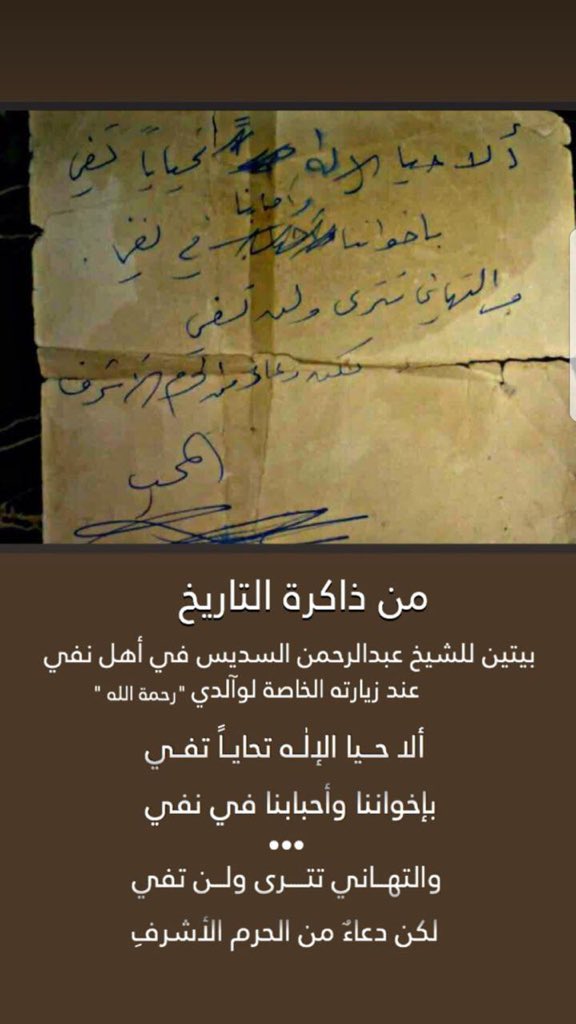 ألا حيا الإله تحاياً تفي
بإخواننا وأحبابنا في نفي
والتهاني تترى ولن تفي
لكن دعاء من الحرم الأشرف
المحب
من ذاكرة التاريخ
بيتين للشيخ عبدالرحمن السديس في أهل نفي
عند زيارته الخاصة لوآلدي "رحمة الله"
ألا حــيا الإلٰـه تحايـاً تفـي
بإخواننا وأحبابنا في نفي
•••
والتهـاني تتـــرى ولــن تفي
لكن دعاءٌ من الحرم الأشرفِ